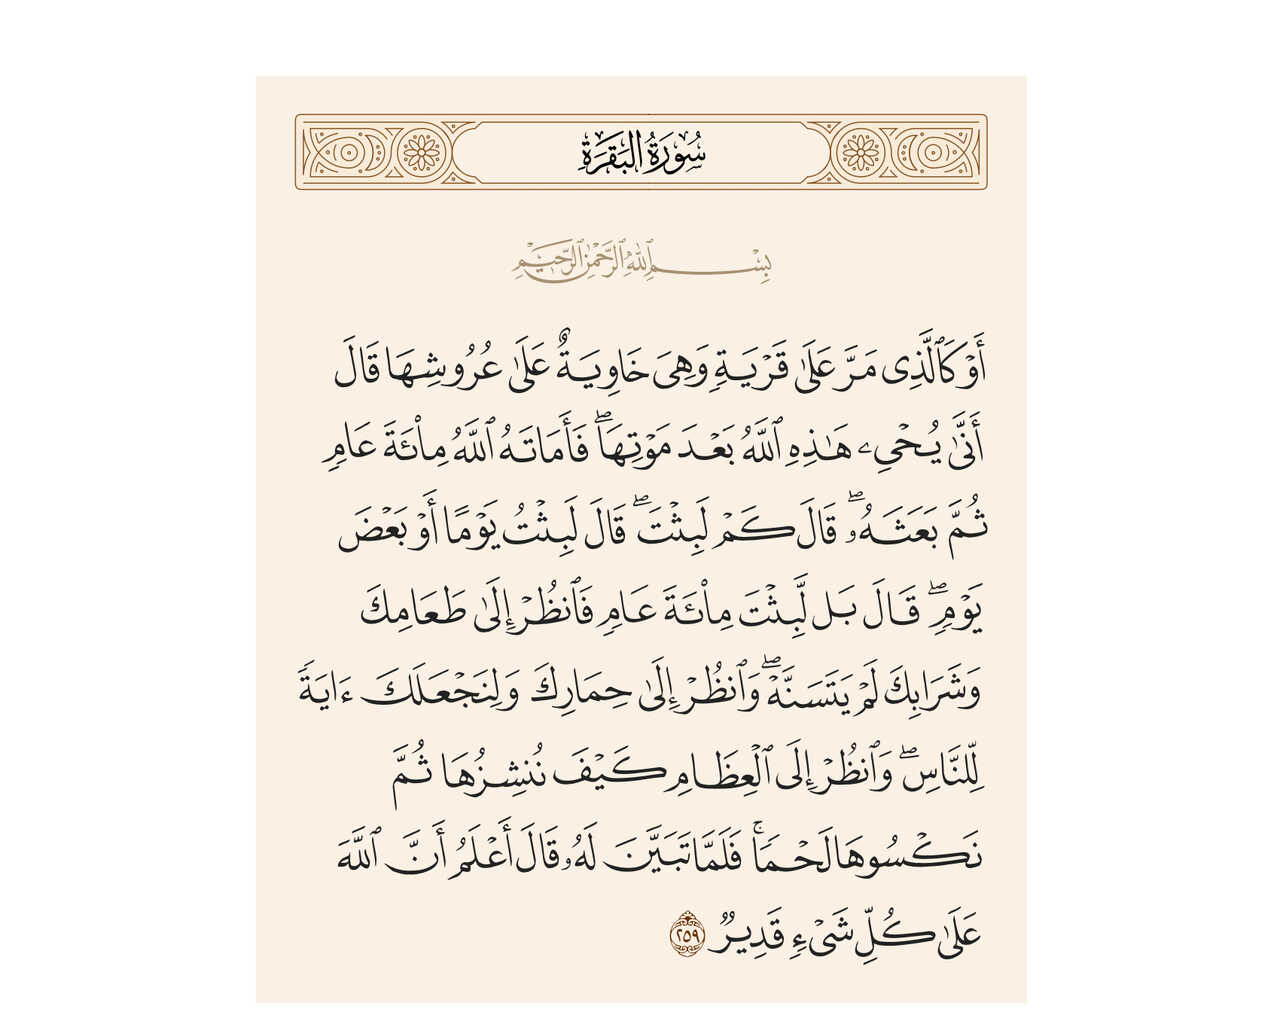 سُورَةُ البَقَرَةِ
بِسْمِ اللهِ الرَّحْمٰنِ الرَّحِيْمِ
أَوْ كَٱلَّذِى مَرَّ عَلَىٰ قَرْيَةٍ وَهِىَ خَاوِيَةٌ عَلَىٰ عُرُوشِهَا قَالَ
أَنَّىٰ يُحْىِۦ هَـٰذِهِ ٱللَّهُ بَعْدَ مَوْتِهَا ۖ فَأَمَاتَهُ ٱللَّهُ مِا۟ئَةَ عَامٍ
ثُمَّ بَعَثَهُۥ ۖ قَالَ كَمْ لَبِثْتَ ۖ قَالَ لَبِثْتُ يَوْمًا أَوْ بَعْضَ
يَوْمٍ ۖ قَالَ بَل لَّبِثْتَ مِا۟ئَةَ عَامٍ فَٱنظُرْ إِلَىٰ طَعَامِكَ
وَشَرَابِكَ لَمْ يَتَسَنَّهْ ۖ وَٱنظُرْ إِلَىٰ حِمَارِكَ وَلِنَجْعَلَكَ ءَايَةً
لِّلنَّاسِ ۖ وَٱنظُرْ إِلَى ٱلْعِظَامِ كَيْفَ نُنشِزُهَا ثُمَّ
نَكْسُوهَا لَحْمًا ۚ فَلَمَّا تَبَيَّنَ لَهُۥ قَالَ أَعْلَمُ أَنَّ ٱللَّهَ
عَلَىٰ كُلِّ شَىْءٍ قَدِيرٌ ٢٥٩